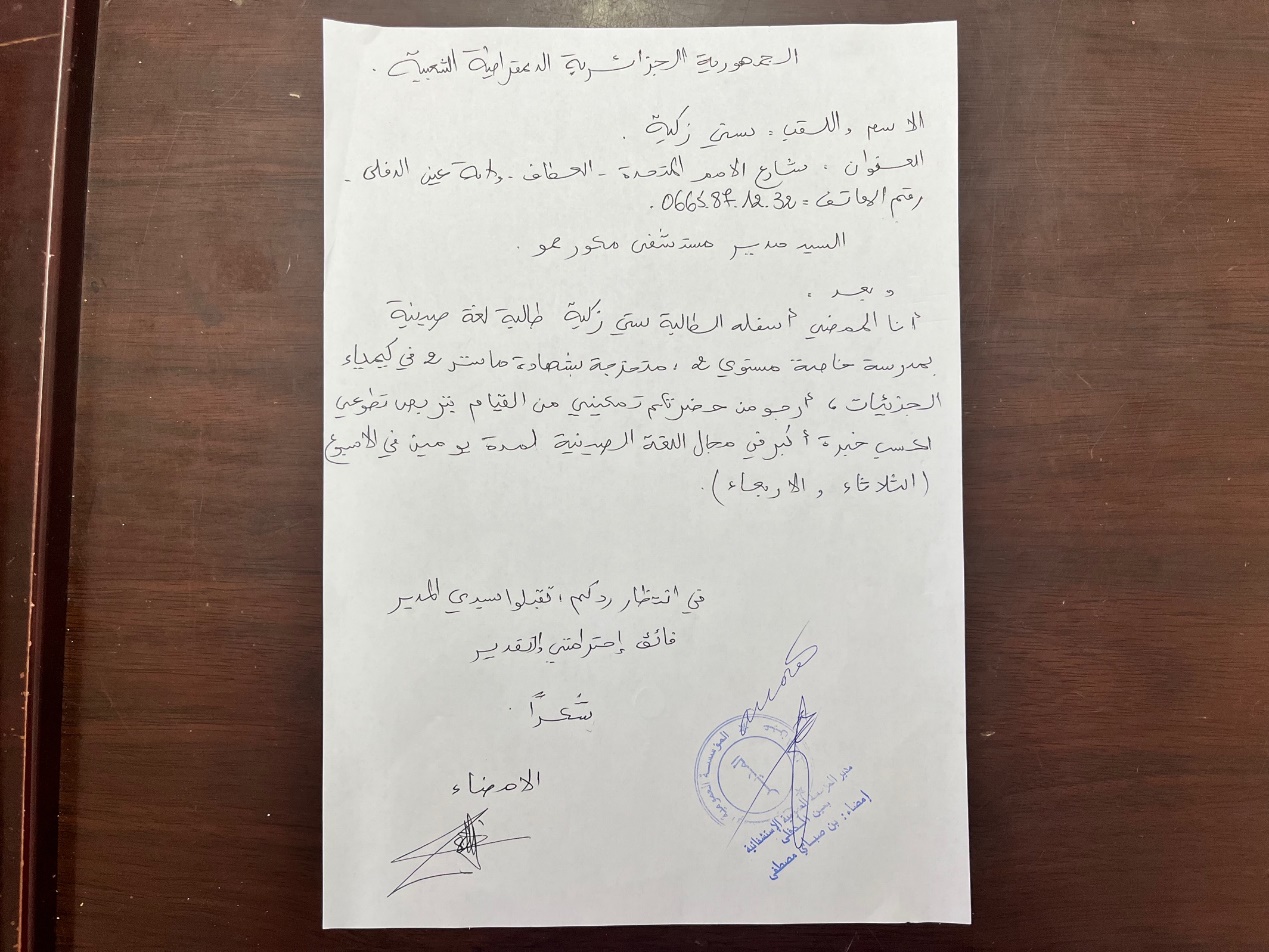 الجمهورية الجزائرية الدمقراطية الشعبية.
الاسم واللقب: ستي زكية.
العنوان: شارع الامم المتحدة - العطاف - ولاية عين الدفلى -
رقم الهاتف: 0665.87.12.32.
السيد مدير مستشفى مكور حمو.
وبعد،
أنا الممضي أسفله الطالبة ستي زكية طالبة لغة صينية
بمدرسة خاصة مستوي 2، متخرجة بشهادة ماستر 2 في كيمياء
الجزئيات، أرجو من حضرتكم تمكيني من القيام بتربص تطوعي
لكسب خبرة أكبر في مجال اللغة الصينية لمدة يومين في الاسبوع
(الثلاثاء و الاربعاء).
في انتظار ردكم، تقبلوا سيدي المدير
فائق إحتراماتي والتقدير
شكراً.
الامضاء
المؤسسة العمومية
مدير المؤسسة العمومية الإستشفائية
بعين الدفلى
إمضاء: بن صباي مصطفى